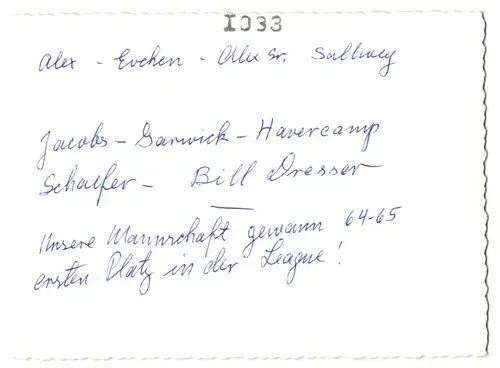 I033
Alex - Evchen - Alex Sr. Sallwey
Jacobs - Garwick - Havercamp
Schaefer - Bill Dresser
Unsere Mannschaft gewann 64-65
ersten Platz in der League!